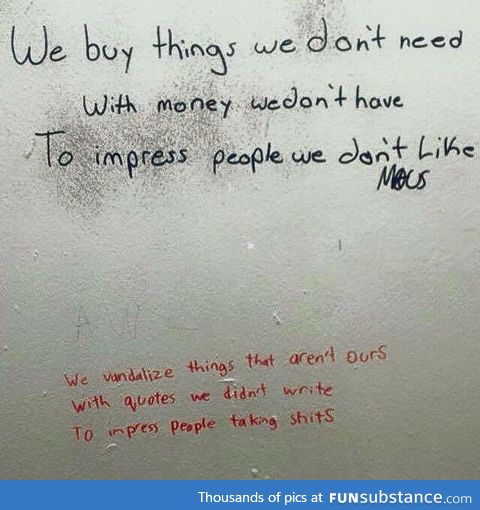 We buy things we don't need
With money we don't have
To impress people we don't Like
We vandalize things that aren't ours
With quotes we didn't write
To impress people taking shits
Thousands of pics at FUNsubstance.com